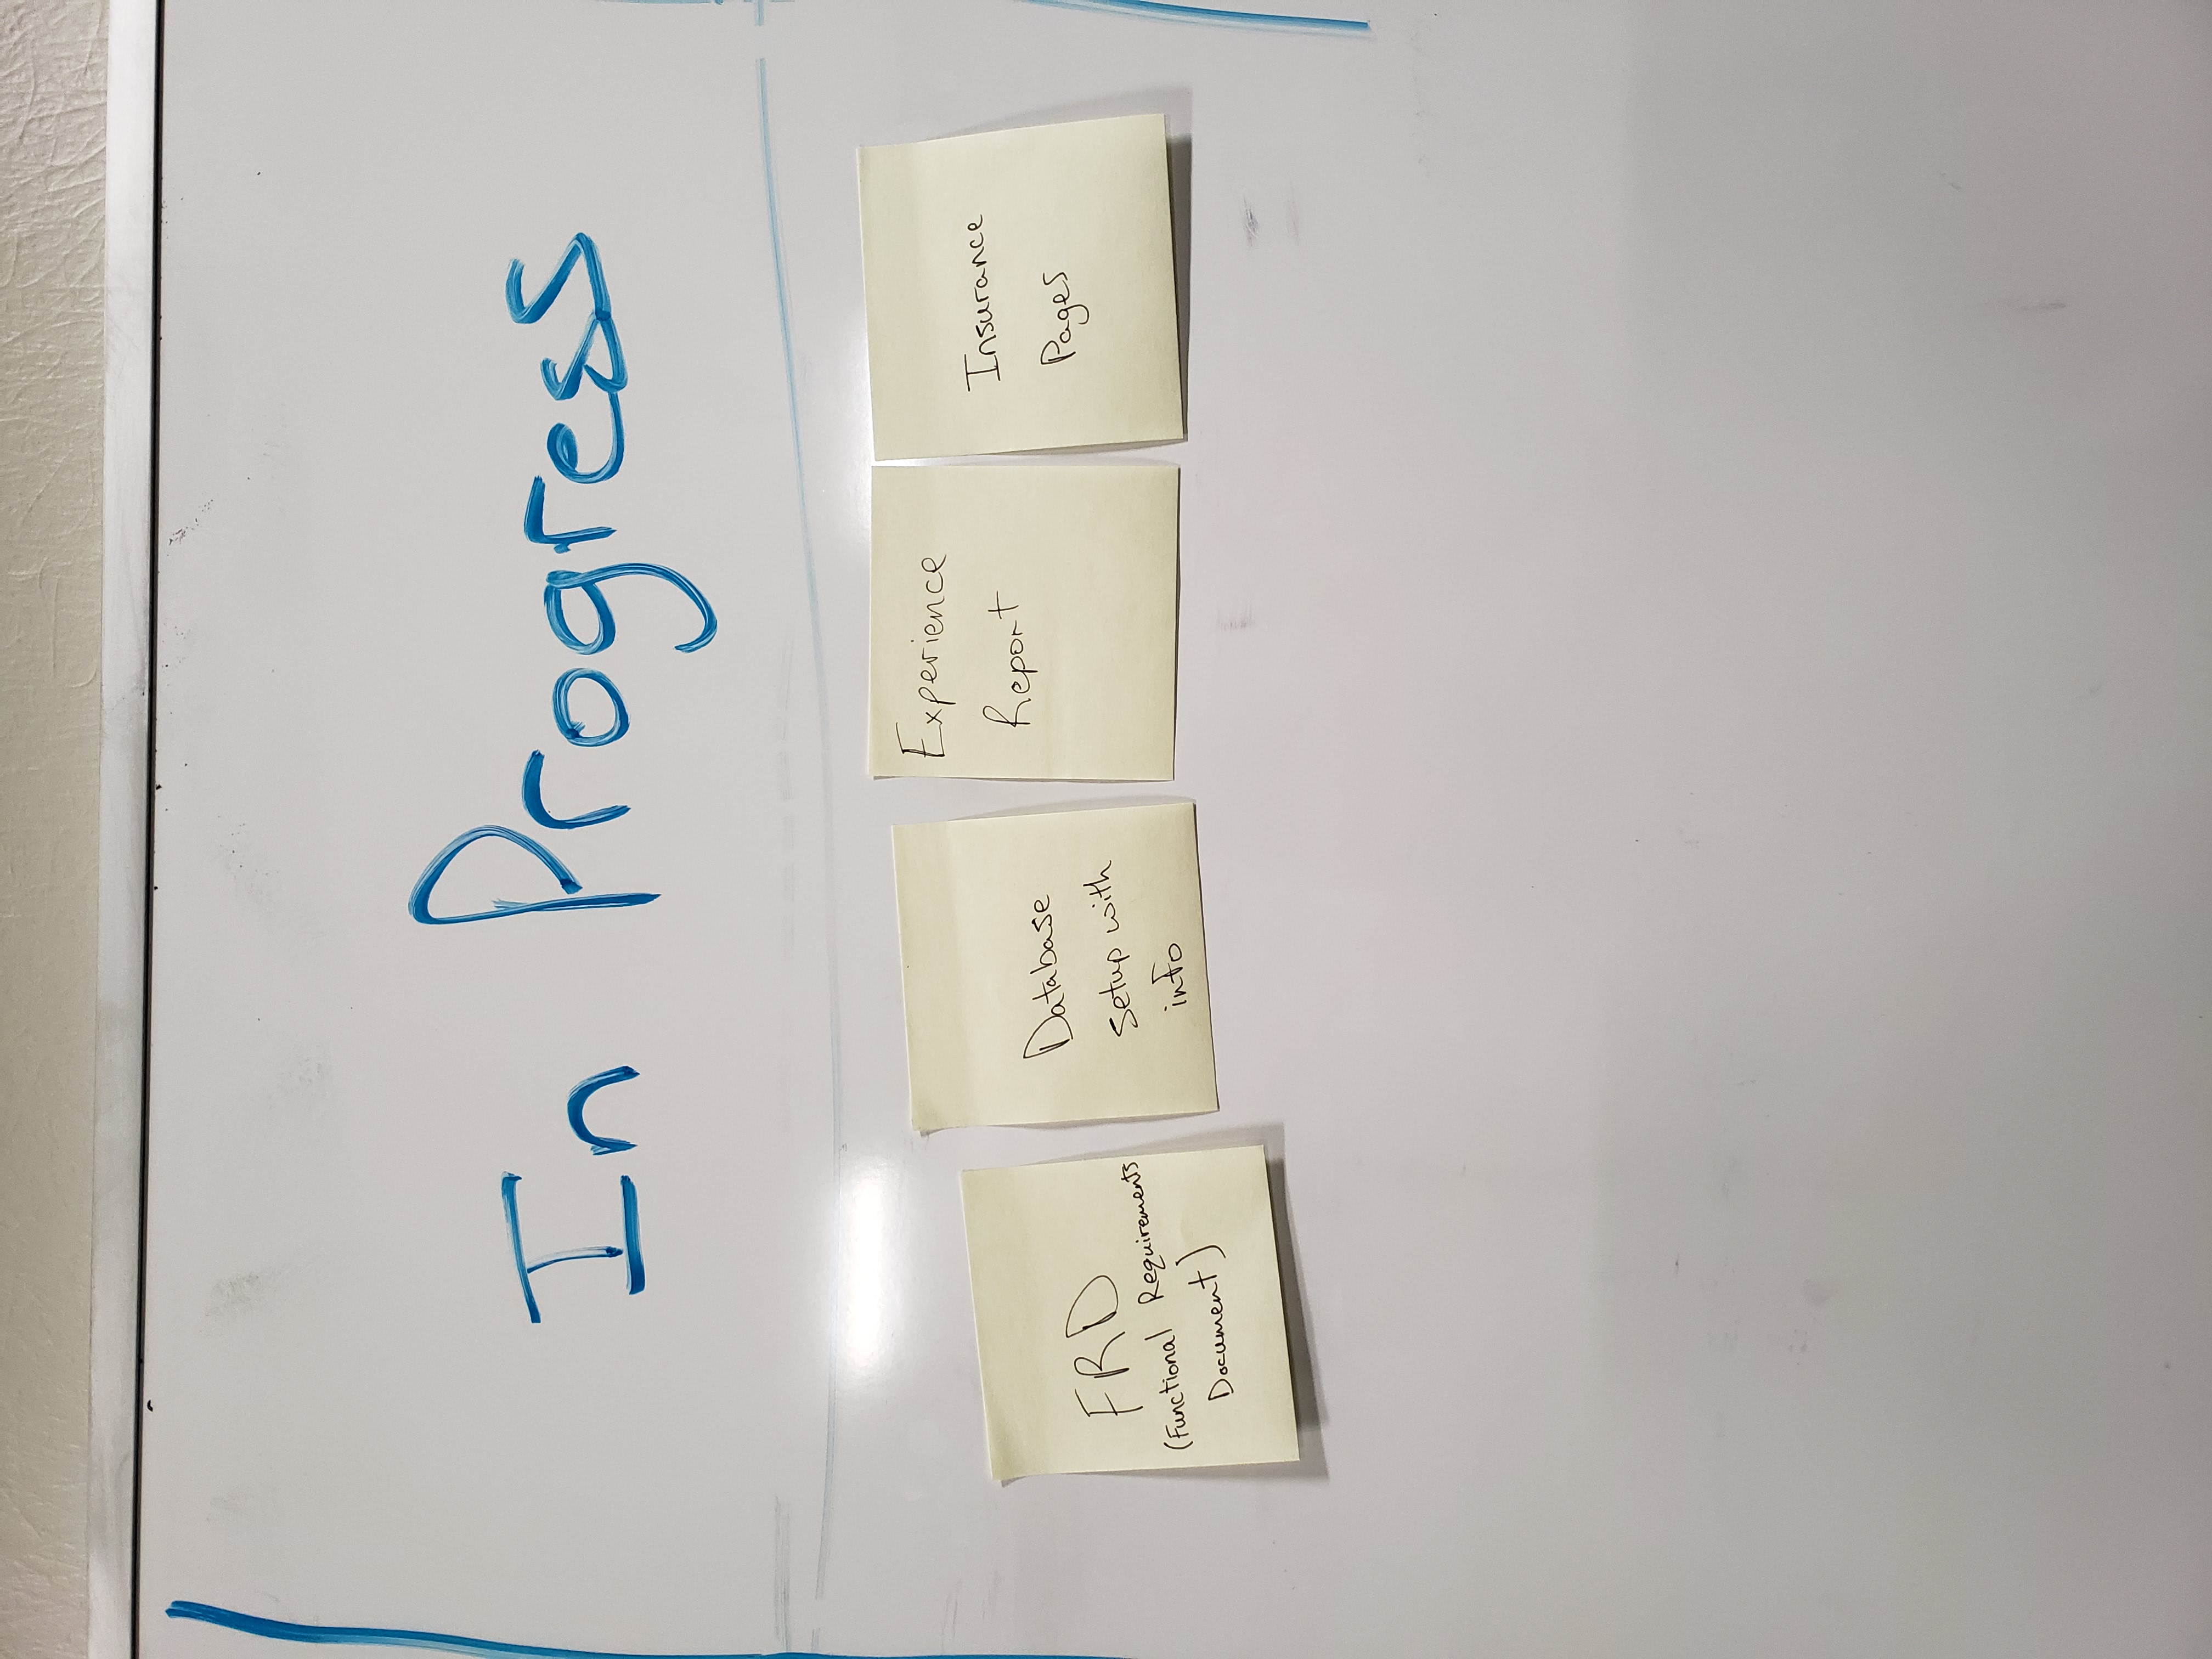 In Progress
FRD
(Functional Requirements
Document)
Database
setup with
info
Experience
Report
Insurance
Pages